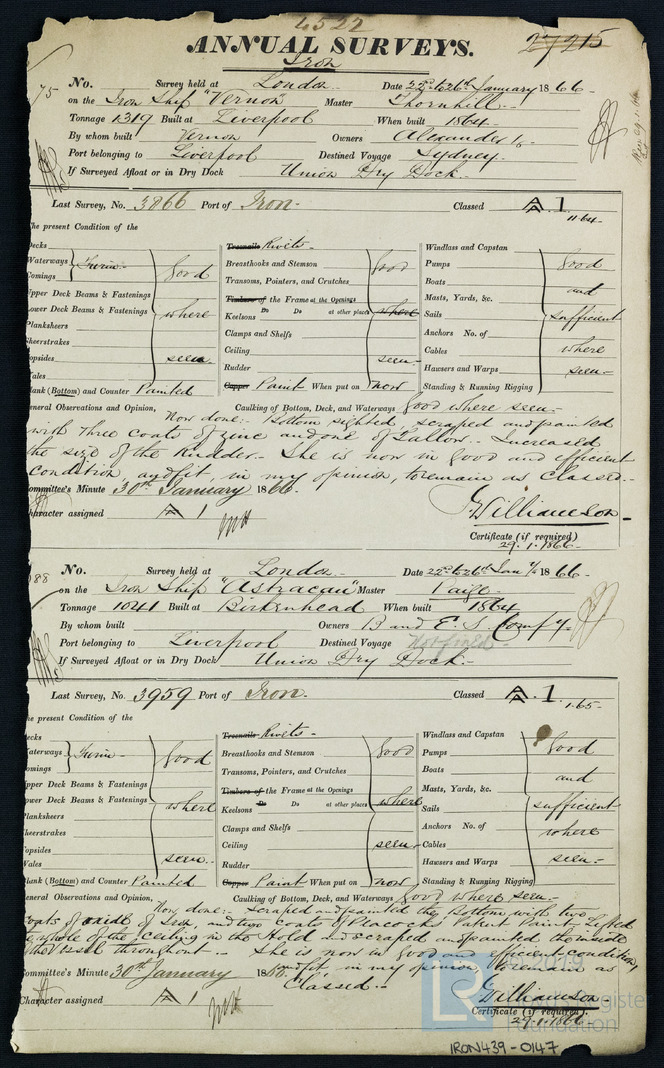 4522
ANNUAL SURVEYS. 27215
Iron
75 No. Survey held at London Date 22nd to 26th January 1866
on the Iron Ship "Vernon" Master Thornhill
Tonnage 1319 Built at Liverpool When built 1864
By whom built Vernon Owners Alexander
Port belonging to Liverpool Destined Voyage Sydney
If Surveyed Afloat or in Dry Dock Union Dry Dock
Last Survey, No. 3866 Port of Iron Classed A 1
11.64
The present Condition of the
Decks
Waterways
Comings
good
Upper Deck Beams & Fastenings
Lower Deck Beams & Fastenings where
Planksheers
Sheerstrakes
Topsides seen
Wales
Plank (Bottom) and Counter Painted
Treenails Rivets
Breasthooks and Stemson good
Transoms, Pointers, and Crutches
Timbers of the Frame at the Openings
Keelsons Do Do at other places where
Clamps and Shelfs
Ceiling seen
Rudder
Copper Paint When put on now
Windlass and Capstan
Pumps good
Boats and
Masts, Yards, &c.
Sails sufficient
Anchors No. of
Cables where
Hawsers and Warps seen
Standing & Running Rigging
General Observations and Opinion, Caulking of Bottom, Deck, and Waterways good where seen
Now done: Bottom sighted, scraped and painted
with three coats of zinc and one of Tallow. Increased
the size of the Rudder. She is now in good and efficient
Condition, and fit, in my opinion, to remain as Classed.
Committee's Minute 30th January 1866
GWilliamson
Character assigned A 1
Certificate (if required)
29.1.1866
88 No. Survey held at London Date 22nd to 26th Jan 1866
on the Iron Ship "Astracan" Master Paige
Tonnage 1041 Built at Birkenhead When built 1864
By whom built Owners B and E. S. Compy
Port belonging to Liverpool Destined Voyage Not fixed
If Surveyed Afloat or in Dry Dock Union Dry Dock
Last Survey, No. 3959 Port of Iron Classed A 1
1.65
The present Condition of the
Decks
Waterways
Comings
good
Upper Deck Beams & Fastenings
Lower Deck Beams & Fastenings where
Planksheers
Sheerstrakes
Topsides
Wales seen
Plank (Bottom) and Counter Painted
Treenails Rivets
Breasthooks and Stemson good
Transoms, Pointers, and Crutches
Timbers of the Frame at the Openings
Keelsons Do Do at other places where
Clamps and Shelfs
Ceiling seen
Rudder
Copper Paint When put on now
Windlass and Capstan
Pumps good
Boats and
Masts, Yards, &c.
Sails sufficient
Anchors No. of where
Cables
Hawsers and Warps seen
Standing & Running Rigging
General Observations and Opinion, Caulking of Bottom, Deck, and Waterways good where seen
Now done: Scraped and painted the Bottom with two
coats of oxide of Iron, and two coats of Peacocks Patent Paint. Lifted
the whole of the Ceiling in the Hold and scraped and painted the inside
of the Vessel throughout. She is now in good and efficient condition,
Committee's Minute 30th January 18 and fit, in my opinion to remain as
Classed.
GWilliamson
Character assigned A 1
Certificate (if required)
29.1.1866
LR Lloyd's Register Foundation
IRON439-0147